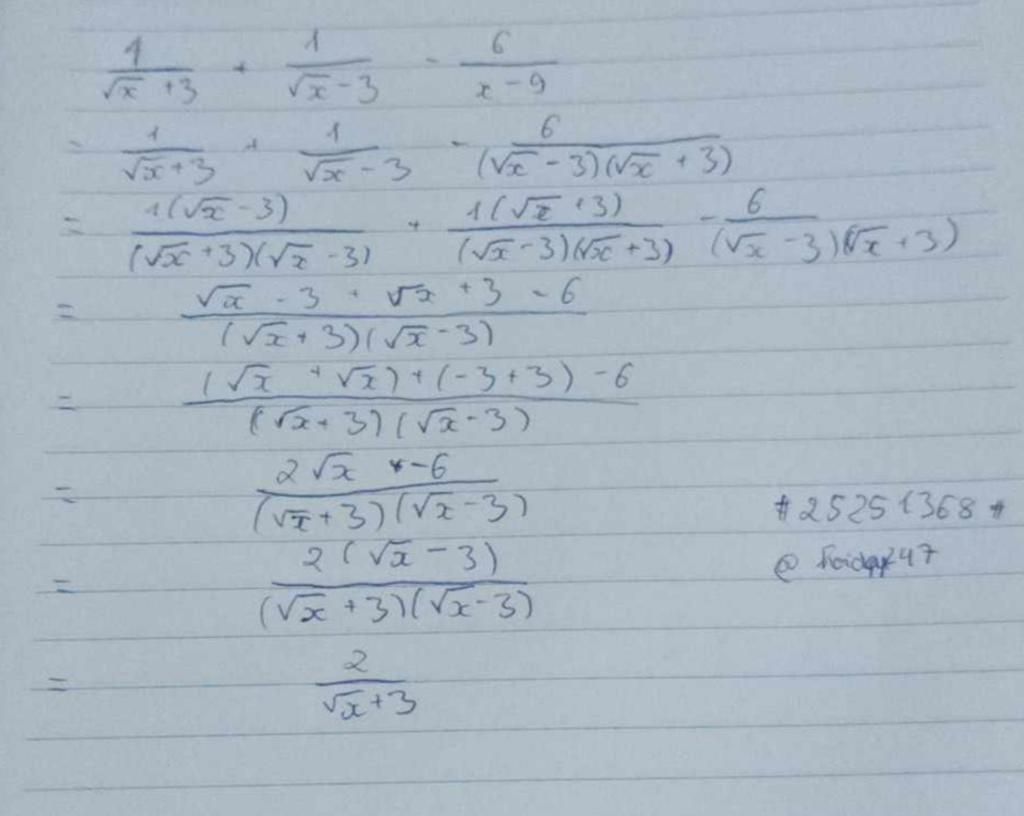 1/(√x + 3) + 1/(√x - 3) - 6/(x - 9)
= 1/(√x + 3) + 1/(√x - 3) - 6/((√x - 3)(√x + 3))
= 1(√x - 3)/((√x + 3)(√x - 3)) + 1(√x + 3)/((√x - 3)(√x + 3)) - 6/((√x - 3)(√x + 3))
= (√x - 3 + √x + 3 - 6)/((√x + 3)(√x - 3))
= ((√x + √x) + (-3 + 3) - 6)/((√x + 3)(√x - 3))
= (2√x - 6)/((√x + 3)(√x - 3))
#25251368#
= 2(√x - 3)/((√x + 3)(√x - 3))
= 2/(√x + 3)